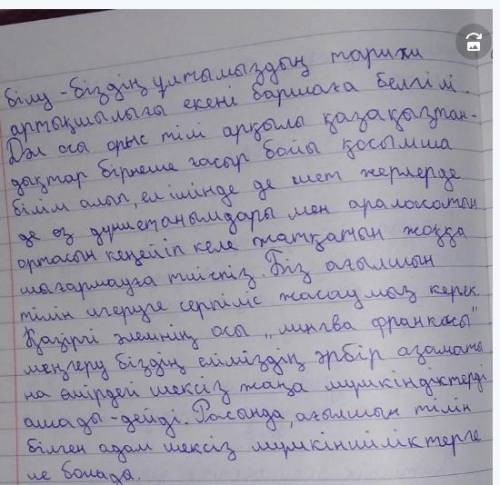 білу - біздің ұлтымыздың тарихи
артықшылығы екені баршаға белгілі.
Дәл осы орыс тілі арқылы қазақыстан-
дықтар бірнеше ғасыр бойы қосымша
білім алып, ел ішінде де шет жерлерде
де өз дүниетанымдары мен араласатын
ортасын кеңейіп келе жатқатын жоққа
шығармауға тиіспіз. Біз ағылшын
тілін игеруге серпіліс жасаумыз керек.
Қазіргі әлемнің осы „лингва франкасы"
меңгеру біздің еліміздің әрбір азаматы
на өмірдегі шексіз жаңа мүмкіндіктерді
ашады - дейді. Расында, ағылшын тілін
білген адам шексіз мүмкіншіліктерге
ие болады.